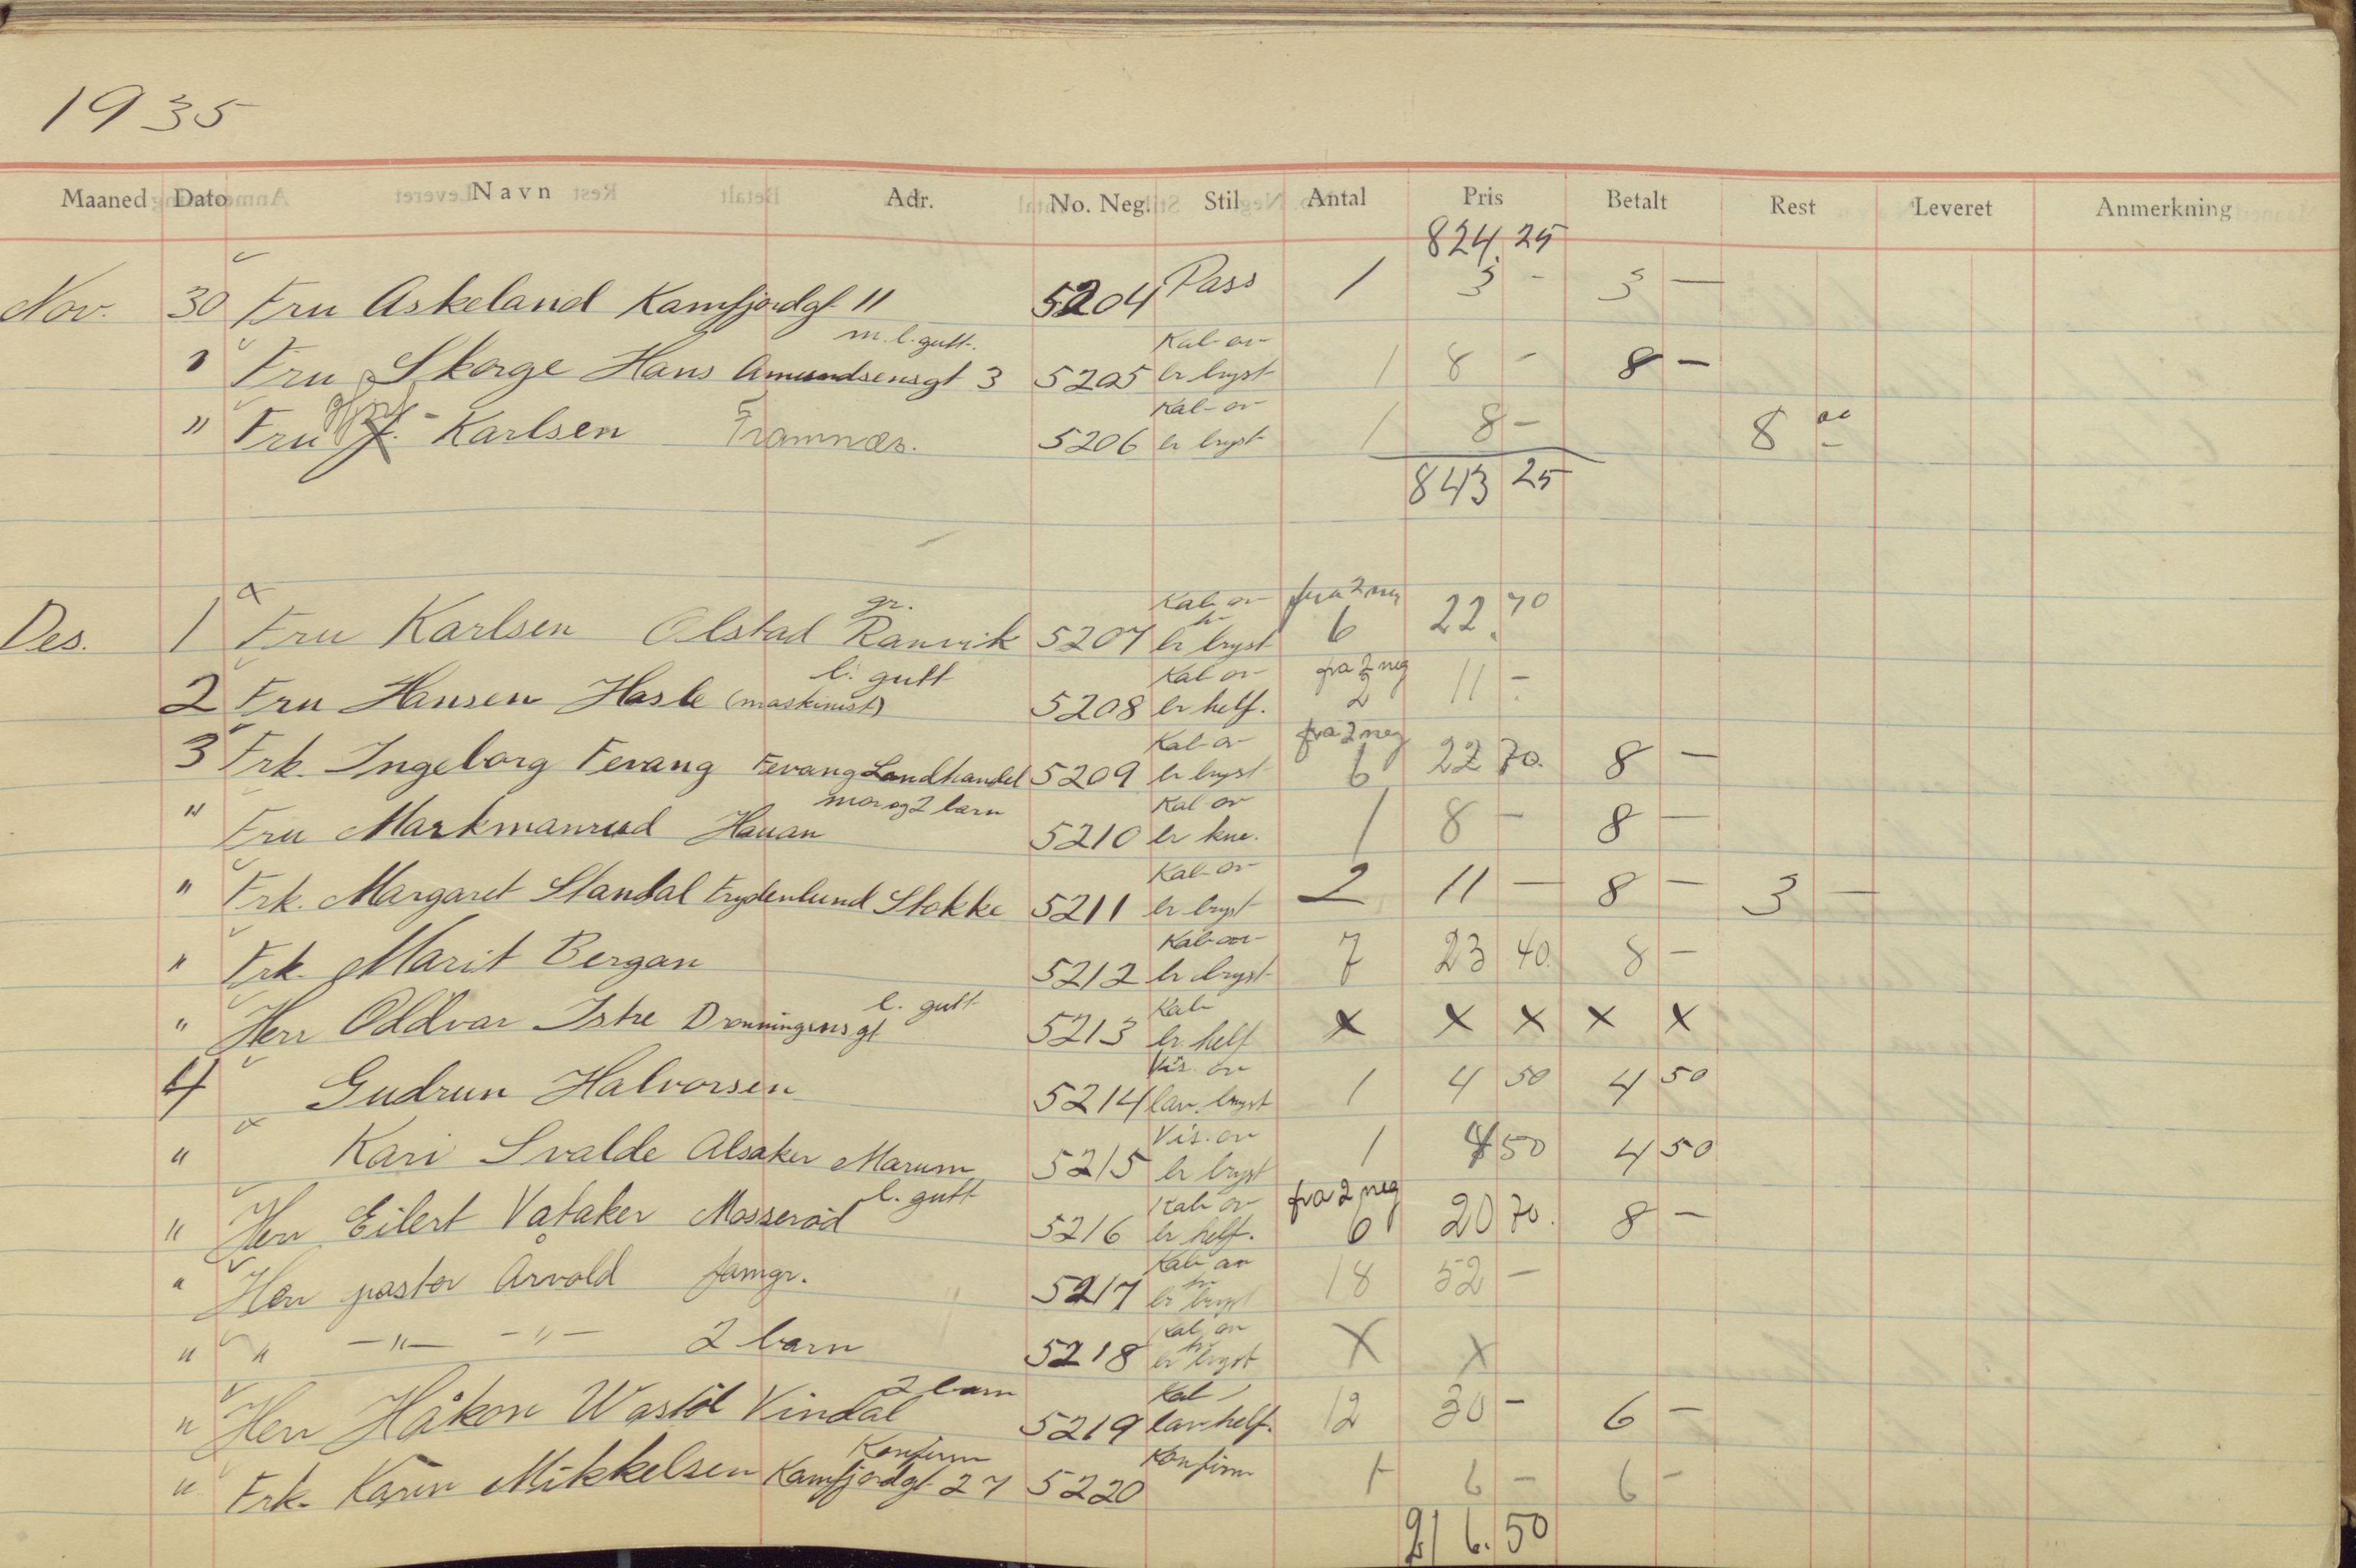 1935
Maaned Dato Navn Adr. No. Neg. Stil Antal Pris Betalt Rest Leveret Anmerkning
824.25
Nov. 30 Fru Askeland Kamfjordgt 11 5204 Pass 1 3 - 3 -
m. l. gutt. Kab-or
" Fru Skorge Hans Amundsensgt 3 5205 br bryst 1 8 - 8 -
Kab-or
" Fru Karlsen Framnæs. 5206 br bryst 1 8 - 8 -
843 25
gr. Kab or fra 2 neg
Des. 1 Fru Karlsen Olstad Ranvik 5207 br bryst 6 22.70
l. gutt Kab or fra 2 neg
2 Fru Hansen Hasle (maskinist) 5208 br helf. 2 11 -
Kab-or fra 2 neg
3 Frk. Ingeborg Fevang Fevang Landhandel 5209 br bryst 6 22 70. 8 -
mor og 2 barn Kab or
" Fru Markmanrud Hauan 5210 br kne. 1 8 - 8 -
Kab-or
" Frk. Margaret Standal Frydenlund Stokke 5211 br bryst 2 11 - 8 - 3 -
Kab-or
" Frk. Marit Bergan 5212 br bryst 7 23 40. 8 -
l. gutt Kab
" Herr Oddvar Istre Dronningensgt 5213 br. helf x x x x x
Vis. or
4 Gudrun Halvorsen 5214 lav. bryst 1 4 50 4 50
Vis. or
" Kari Svalde Alsaker Marum 5215 br bryst 1 4 50 4 50
l. gutt Kab or fra 2 neg
" Herr Eilert Vataker Mosserød 5216 br helf. 6 20 70. 8 -
Kab or
" Herr pastor Arvold famgr. 5217 br bryst 18 52 -
Kab or
" " -"- -"- 2 barn 5218 br bryst x x
2 barn Kab
" Herr Håkon Wastøl Vindal 5219 lav helf. 12 30 - 6 -
Konfirm Konfirm
" Frk. Karin Mikkelsen Kamfjordgt 27 5220 1 6 - 6 -
216.50